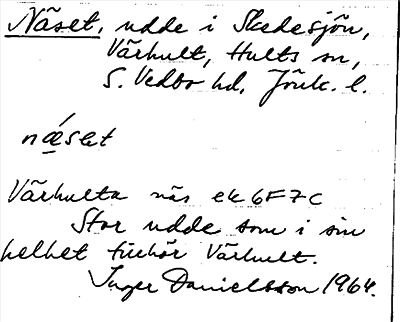 Näset, udde i Skedesjön,
Värhult, Hults sn,
S. Vedbo hd, Jönk. l.
næ´set
Värhulta näs ek 6F7C
Stor udde som i sin
helhet tillhör Värhult.
Inger Danielsson 1964.